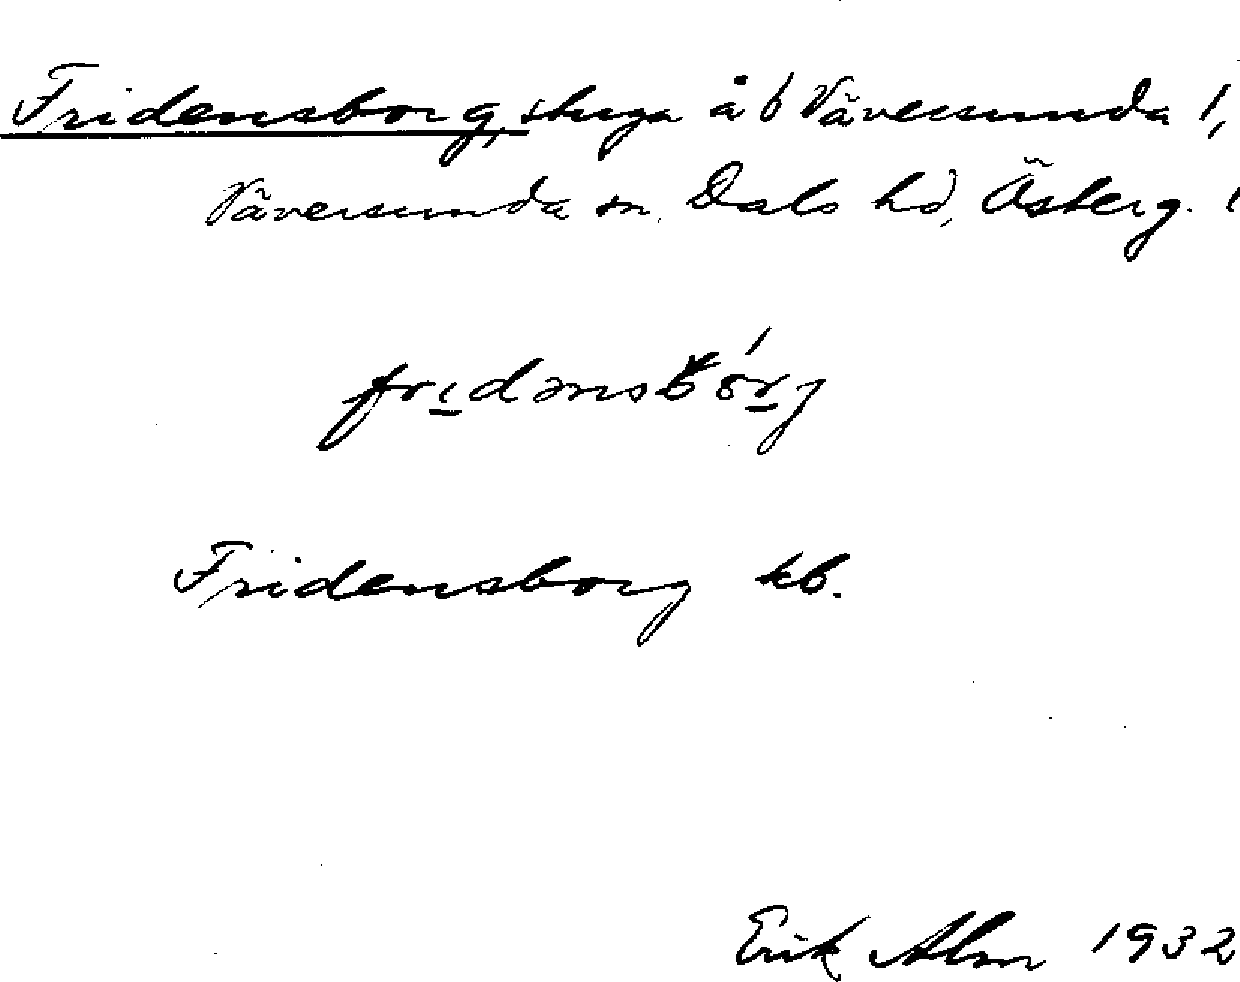 Fridensborg, stuga å b Väversunda 1,
Väversunda sn, Dals hd, Österg. l
fridənsbórj
Fridensborg kb.
Erik Alm 1932